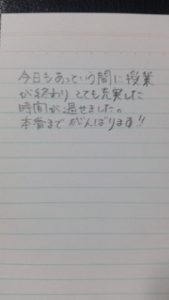 今日もあっという間に授業
が終わり とても充実した
時間が過せました。
本番まで がんばります!!